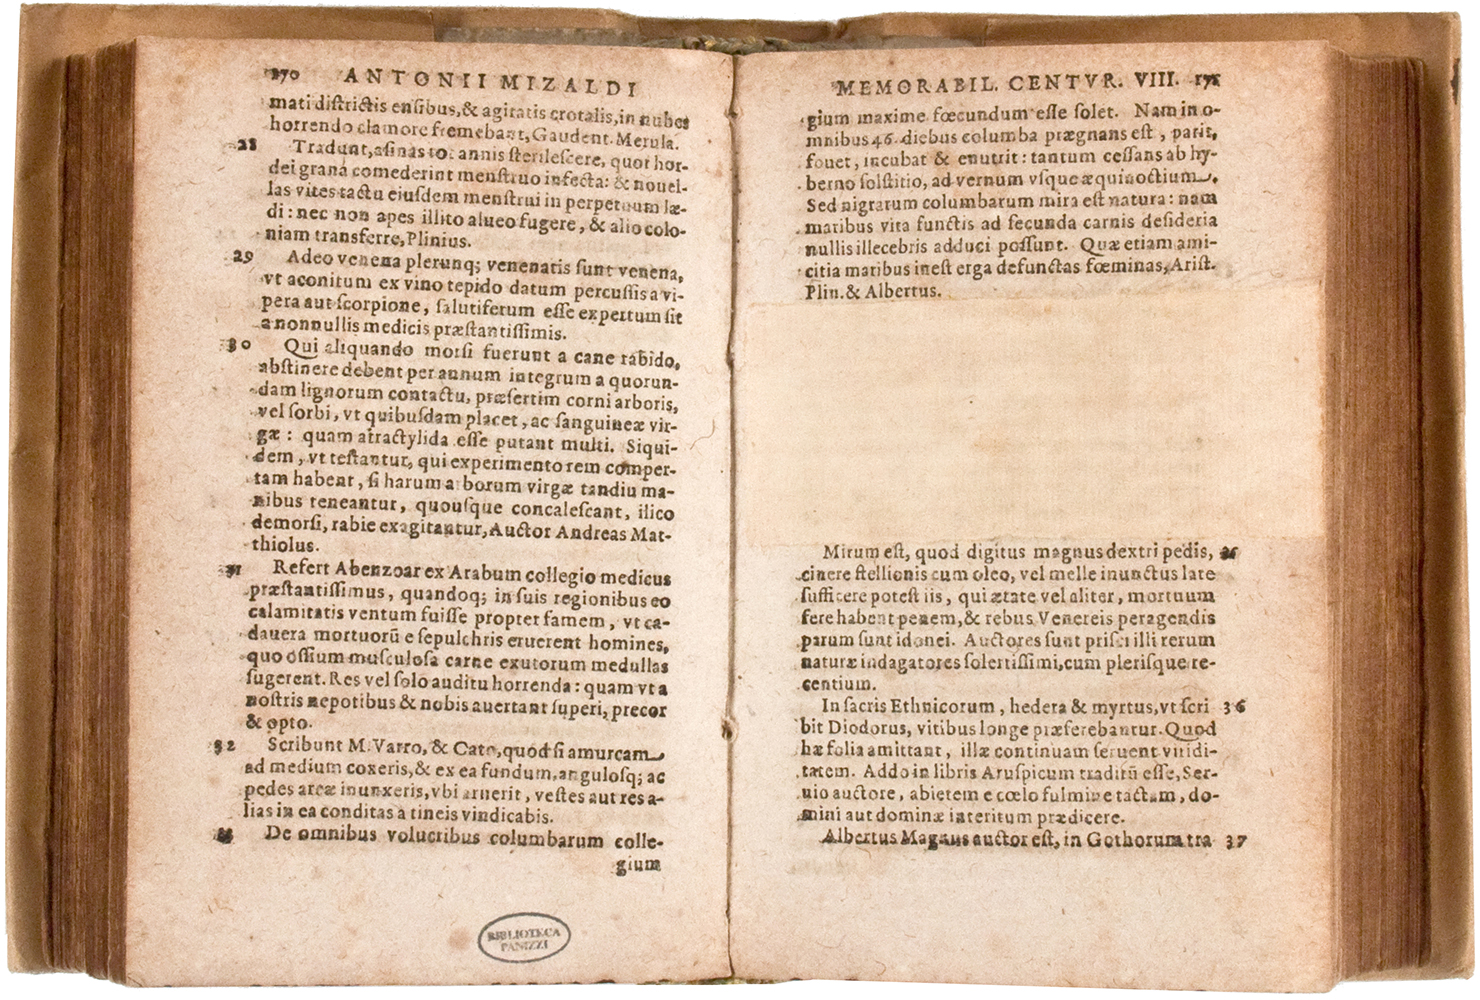 170 ANTONII MIZALDI
mati districtis ensibus, & agitatis crotalis, in nubes
horrendo clamore fremebant, Gaudent. Merula.
28 Tradunt, asinas tot annis sterilescere, quot hor-
dei grana comederint menstruo infecta: & nouel-
las vites tactu eiusdem menstrui in perpetuum læ-
di: nec non apes illito alueo fugere, & alio colo-
niam transferre, Plinius.
29 Adeo venena plerunq; venenatis sunt venena,
vt aconitum ex vino tepido datum percussis a vi-
pera aut scorpione, salutiferum esse expertum sit
a nonnullis medicis præstantissimis.
30 Qui aliquando morsi fuerunt a cane rabido,
abstinere debent per annum integrum a quorun-
dam lignorum contactu, præsertim corni arboris,
vel sorbi, vt quibusdam placet, ac sanguineæ vir-
gæ: quam atractylida esse putant multi. Siqui-
dem, vt testantur, qui experimento rem comper-
tam habent, si harum arborum virgæ tandiu ma-
nibus teneantur, quousque concalescant, ilico
demorsi, rabie exagitantur, Auctor Andreas Mat-
thiolus.
31 Refert Abenzoar ex Arabum collegio medicus
præstantissimus, quandoq; in suis regionibus eo
calamitatis ventum fuisse propter famem, vt ca-
dauera mortuorū e sepulchris eruerent homines,
quo ossium musculosa carne exutorum medullas
sugerent. Res vel solo auditu horrenda: quam vt a
nostris nepotibus & nobis auertant superi, precor
& opto.
32 Scribunt M. Varro, & Cato, quòd si amurcam
ad medium coxeris, & ex ea fundum, angulosq; ac
pedes arcæ inunxeris, vbi aruerit, vestes aut res a-
lias in ea conditas a tineis vindicabis.
33 De omnibus volucribus columbarum colle-
gium
BIBLIOTECA
PANIZZI
MEMORABIL. CENTVR. VIII. 171
gium maxime fœcundum esse solet. Nam in o-
mnibus 46. diebus columba prægnans est, parit,
fouet, incubat & enutrit: tantum cessans ab hy-
berno solstitio, ad vernum vsque æquinoctium.
Sed nigrarum columbarum mira est natura: nam
maribus vita functis ad secunda carnis desideria
nullis illecebris adduci possunt. Quæ etiam ami-
citia maribus inest erga defunctas fœminas, Arist.
Plin. & Albertus.
Mirum est, quod digitus magnus dextri pedis, 35
cinere stellionis cum oleo, vel melle inunctus late
sufficere potest iis, qui ætate vel aliter, mortuum
fere habent penem, & rebus Venereis peragendis
parum sunt idonei. Auctores sunt prisci illi rerum
naturæ indagatores solertissimi, cum plerisque re-
centium.
In sacris Ethnicorum, hedera & myrtus, vt scri 36
bit Diodorus, vitibus longe præferebantur. Quod
hæ folia amittant, illæ continuam seruent viridi-
tatem. Addo in libris Aruspicum traditū esse, Ser-
uio auctore, abietem e cœlo fulmine tactam, do-
mini aut dominæ interitum prædicere.
Albertus Magnus auctor est, in Gothorum tra 37